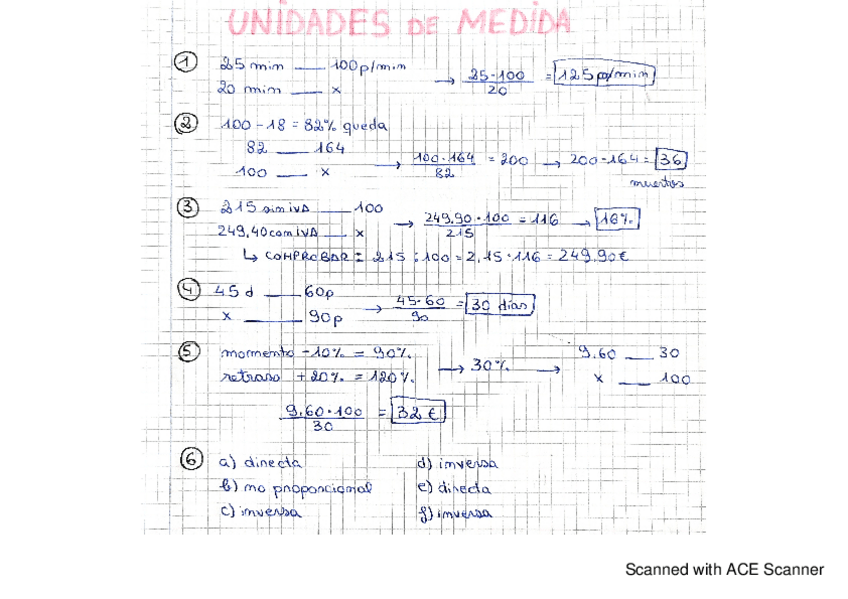 UNIDADES DE MEDIDA
① 25 min ___ 100 p/min
20 min ___ x → 25·100 / 20 = 125 p/min
② 100 - 18 = 82% queda
82 ___ 164
100 ___ x → 100·164 / 82 = 200 → 200-164 = 36 muertos
③ 215 sin IVA ___ 100
249,40 con IVA ___ x → 249,90·100 / 215 = 116 → 16%
↳ COMPROBAR: 215 : 100 = 2,15 · 116 = 249,90€
④ 45 d ___ 60p
x ___ 90p → 45·60 / 90 = 30 días
⑤ momento -10% = 90%
retraso +20% = 120% → 30% → 9,60 ___ 30
x ___ 100
9,60·100 / 30 = 32 €
⑥ a) directa d) inversa
b) no proporcional e) directa
c) inversa f) inversa
Scanned with ACE Scanner